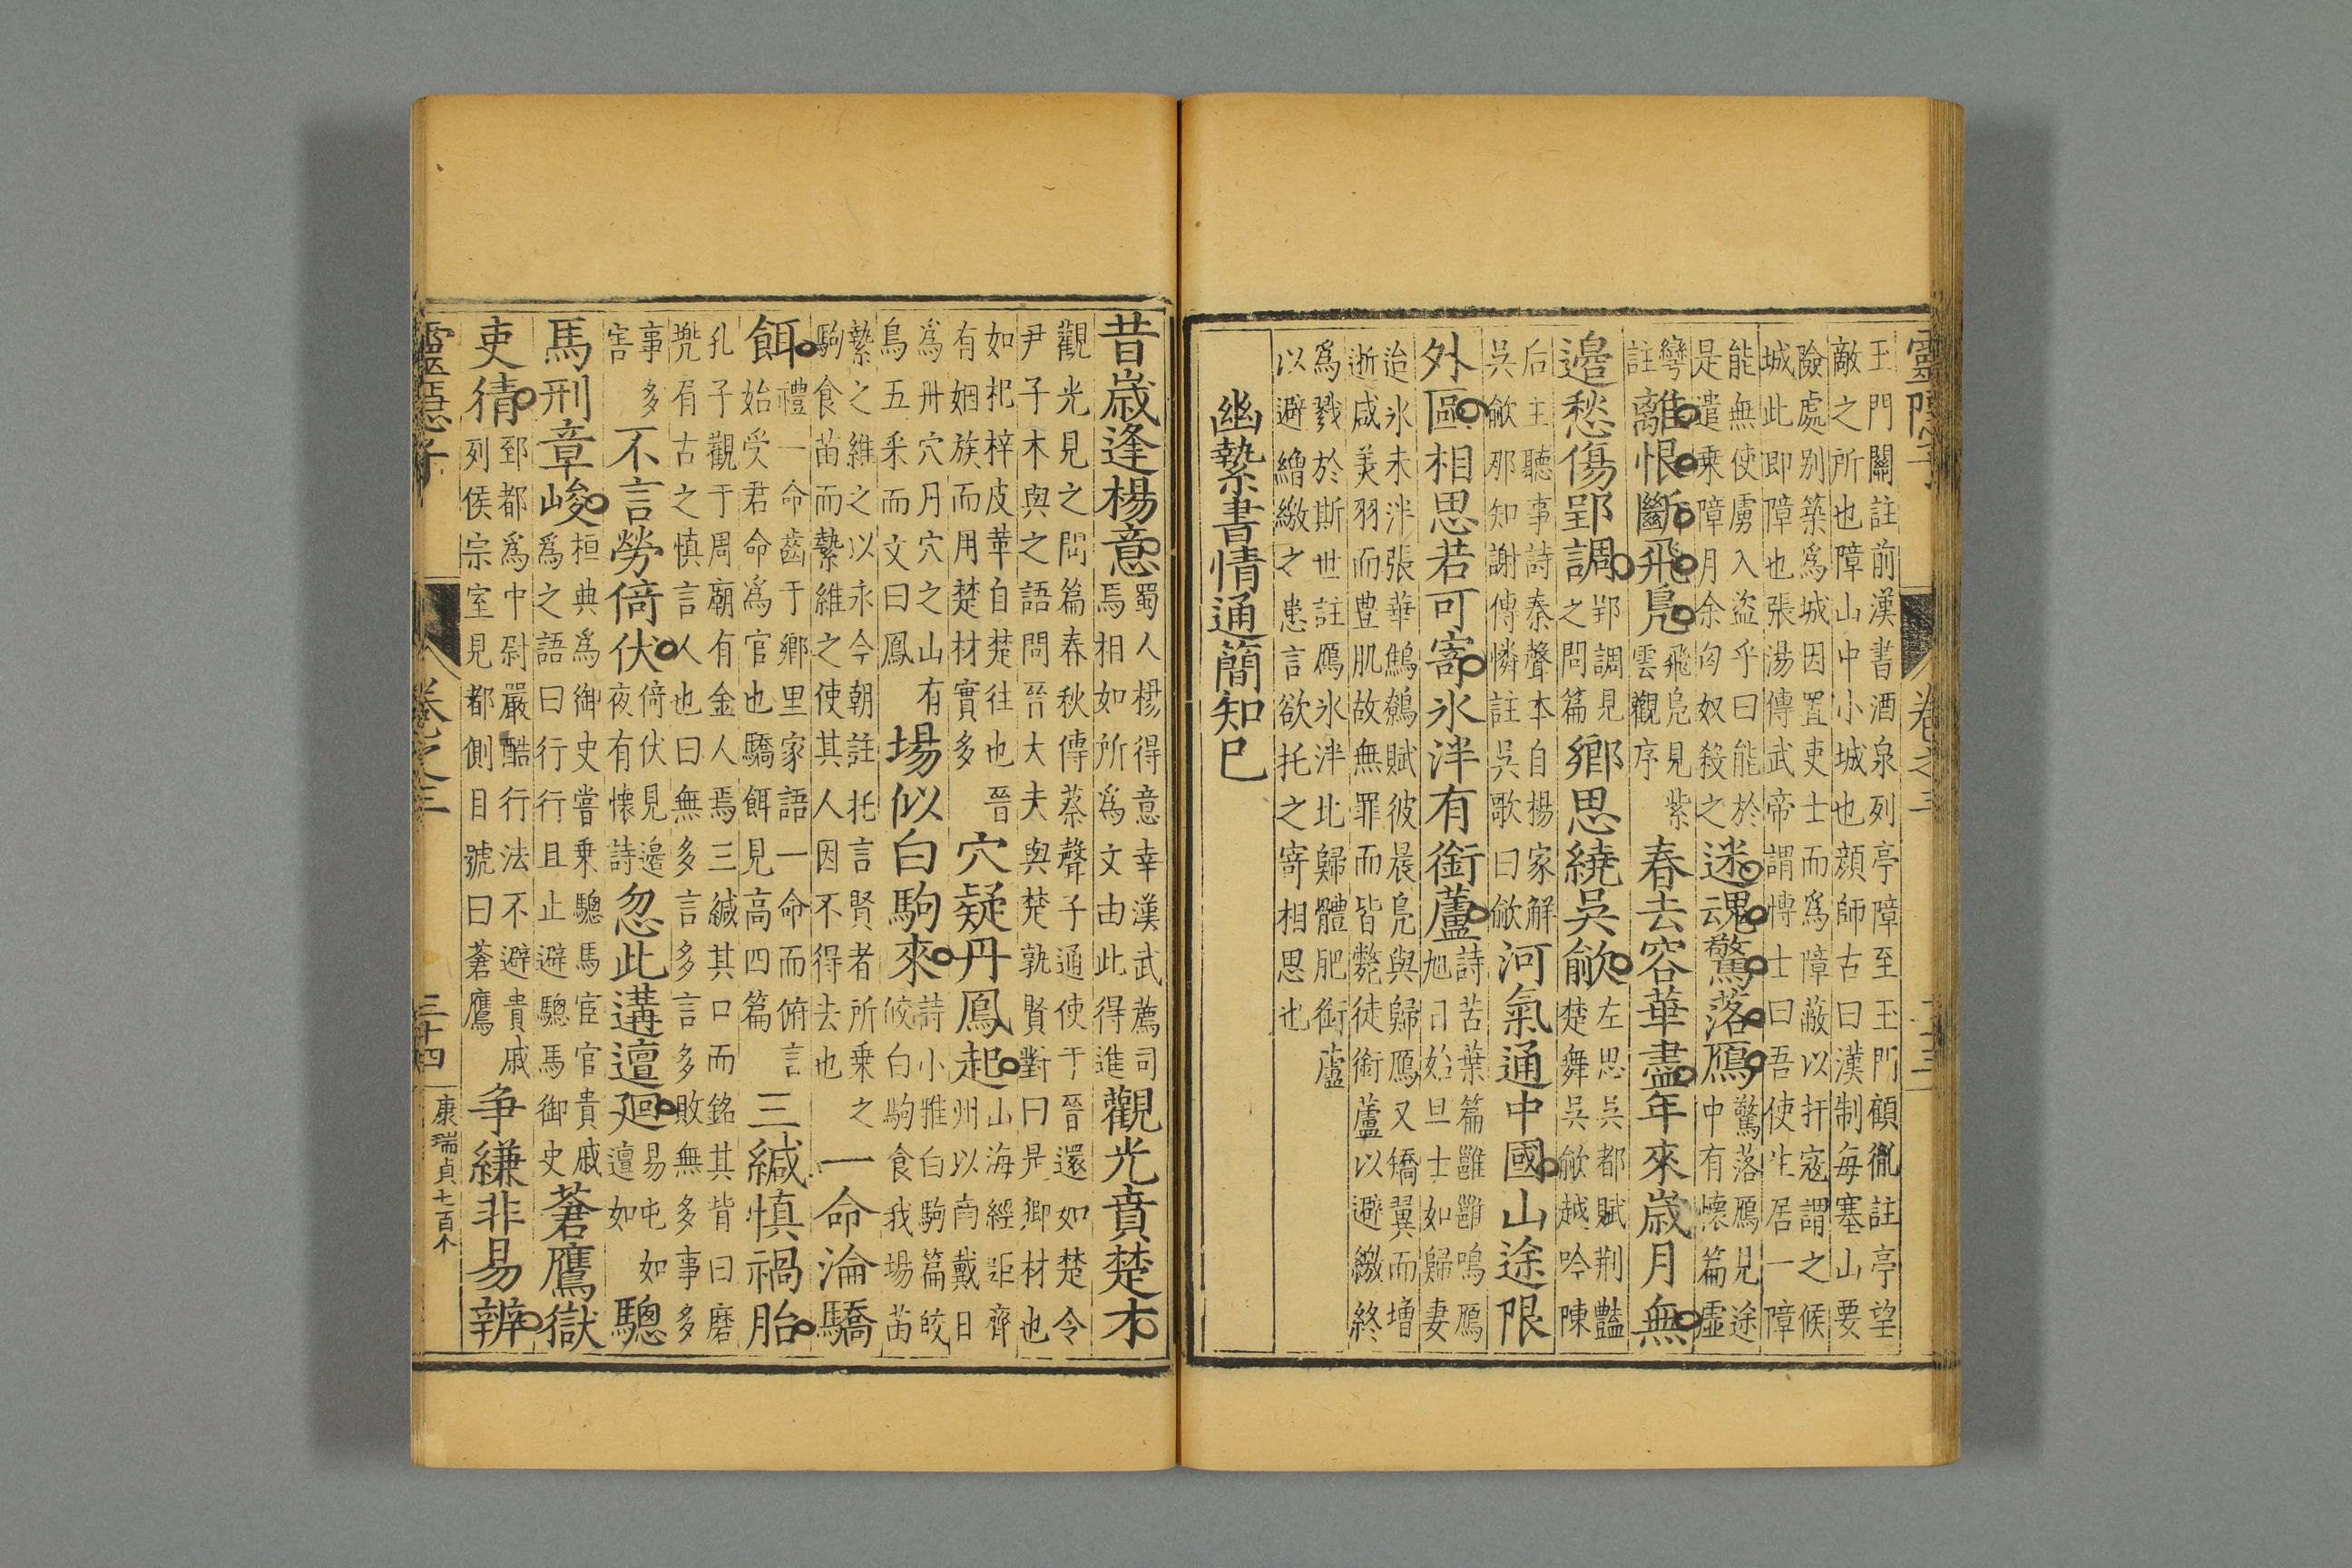 靈隱子 卷之三
玉門關註前漢書酒泉列亭障至玉門顧胤註亭望
敵之所也障山中小城也顔師古曰漢制每塞山要
險處别築爲城因置吏士而爲障蔽以扞寇謂之候
城此即障也張湯傳武帝謂慱士曰吾使生居一障
能無使虜入盗乎曰能於
是遣乗障月余匈奴殺之
迷魂驚落鴈
驚落鴈見途
中有懷篇虛
彎
註
離恨斷飛鳧
飛鳧見紫
雲觀序
春去容華盡年來歲月無
邉愁傷郢調
郢調見
之問篇
鄉思繞吳歈
左思吳都賦荆豔
楚舞吳歈越吟陳
后主聽事詩秦聲本自揚家解
吳歈那知謝傳憐註吳歌曰歈
河氣通中國山途限
外區相思若可寄氷泮有銜蘆
詩苦葉篇雝雝鳴鴈
旭日始旦士如歸妻
迨氷未泮張華鷦鷯賦彼晨鳧與歸鴈又矯翼而增
逝咸美羽而豊肌故無罪而皆斃徒銜蘆以避繳終
爲戮於斯世註鴈氷泮北歸體肥銜蘆
以避繒繳之患言欲托之寄相思也
幽縶書情通簡知已
昔歲逢楊意
蜀人楊得意幸漢武薦司
馬相如所爲文由此得進
觀光賁楚材
觀光見之問篇春秋傳蔡聲子通使于晉還如楚令
尹子木與之語問晉大夫與楚孰賢對曰是卿材也
如杞梓皮革自楚往也晉
有姻族而用楚材實多
穴疑丹鳳起
山海經距齊
州以南戴日
爲丹穴丹穴之山有
鳥五采而文曰鳳
場似白駒來
詩小雅白駒篇皎
皎白駒食我場苗
縶之維之以永今朝註托言賢者所乗之
駒食苗而縶維之使其人因不得去也
一命淪驕
餌
禮一命齒于鄉里家語一命而俯言
始受君命爲官也驕餌見高四篇
三緘慎禍胎
孔子觀于周廟有金人焉三緘其口而銘其背曰磨
兠有古之慎言人也曰無多言多言多敗無多事多
事多
害
不言勞倚伏
倚伏見邉
夜有懷詩
忽此遘邅廻
易屯如
邅如
驄
馬刑章峻
桓典爲御史嘗乗驄馬宦官貴戚
爲之語曰行行且止避驄馬御史
蒼鷹獄
吏猜
郅都爲中尉嚴酷行法不避貴戚
列侯宗室見都側目號曰蒼鷹
争縑非易辨
卷之三 三十四
康瑞貞七百个